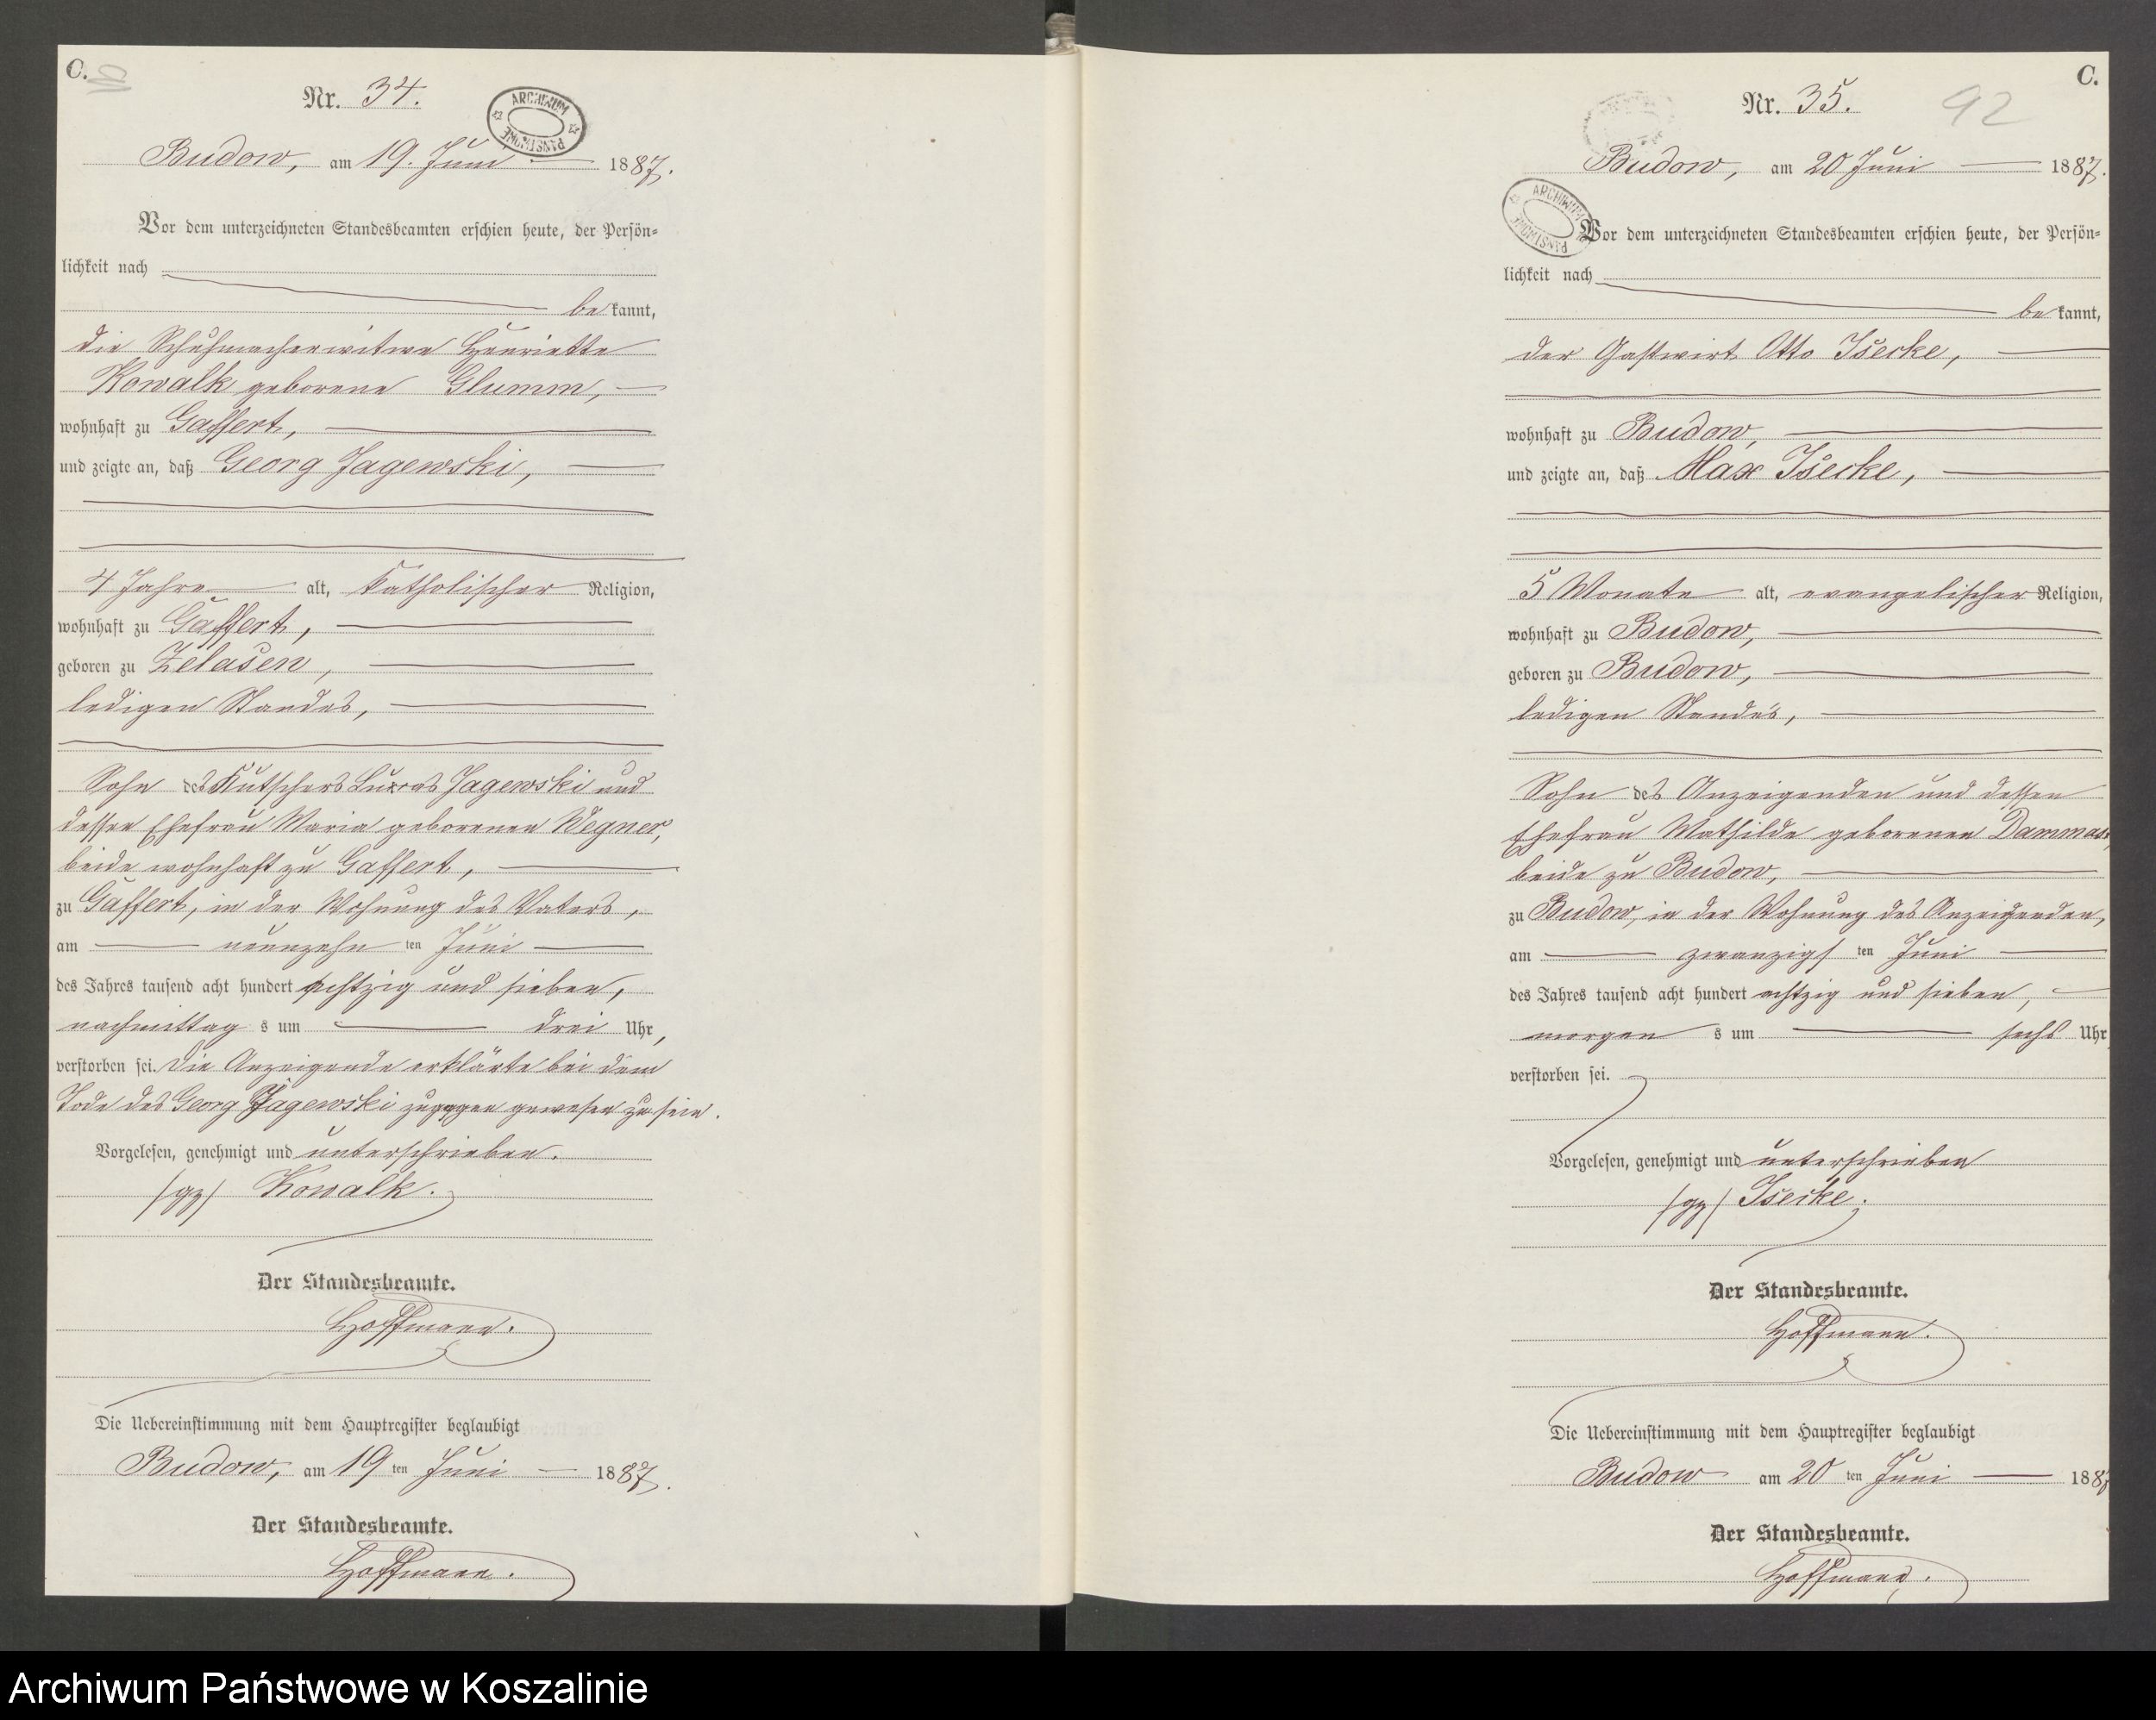 C.
Nr. 34.
ARCHIWUM PAŃSTWOWE
Budow, am 19. Juni 1887.
Vor dem unterzeichneten Standesbeamten erschien heute, der Persön-
lichkeit nach
be kannt,
die Schuhmacherwitwe Henriette
Kowalk geborene Glumm,
wohnhaft zu Gaffert,
und zeigte an, daß Georg Jagewski,
4 Jahre alt, katholischer Religion,
wohnhaft zu Gaffert,
geboren zu Zelasen,
ledigen Standes,
Sohn des Kutschers Lucas Jagewski und
dessen Ehefrau Maria geborenen Wegner,
beide wohnhaft zu Gaffert,
zu Gaffert, in der Wohnung des Vaters,
am neunzehn ten Juni
des Jahres tausend acht hundert achtzig und sieben,
nachmittag s um drei Uhr,
verstorben sei. Die Anzeigende erklärte bei dem
Tode des Georg Jagewski zugegen gewesen zu sein.
Vorgelesen, genehmigt und unterschrieben.
/gz/ Kowalk.
Der Standesbeamte.
Hoffmann.
Die Uebereinstimmung mit dem Hauptregister beglaubigt
Budow, am 19 ten Juni 1887.
Der Standesbeamte.
Hoffmann.
C.
Nr. 35.
92
Budow, am 20 Juni 1887.
ARCHIWUM PAŃSTWOWE
Vor dem unterzeichneten Standesbeamten erschien heute, der Persön-
lichkeit nach
be kannt,
der Gastwirt Otto Isecke,
wohnhaft zu Budow,
und zeigte an, daß Max Isecke,
5 Monate alt, evangelischer Religion,
wohnhaft zu Budow,
geboren zu Budow,
ledigen Standes,
Sohn des Anzeigenden und dessen
Ehefrau Mathilde geborenen
beide zu Budow,
zu Budow, in der Wohnung des Anzeigenden,
am zwanzigs ten Juni
des Jahres tausend acht hundert achtzig und sieben,
morgen s um sechs Uhr
verstorben sei.
Vorgelesen, genehmigt und unterschrieben
/gz/ Isecke.
Der Standesbeamte.
Hoffmann.
Die Uebereinstimmung mit dem Hauptregister beglaubigt
Budow am 20 ten Juni 1887
Der Standesbeamte.
Hoffmann.
Archiwum Państwowe w Koszalinie